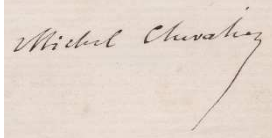 Michel Chevalier